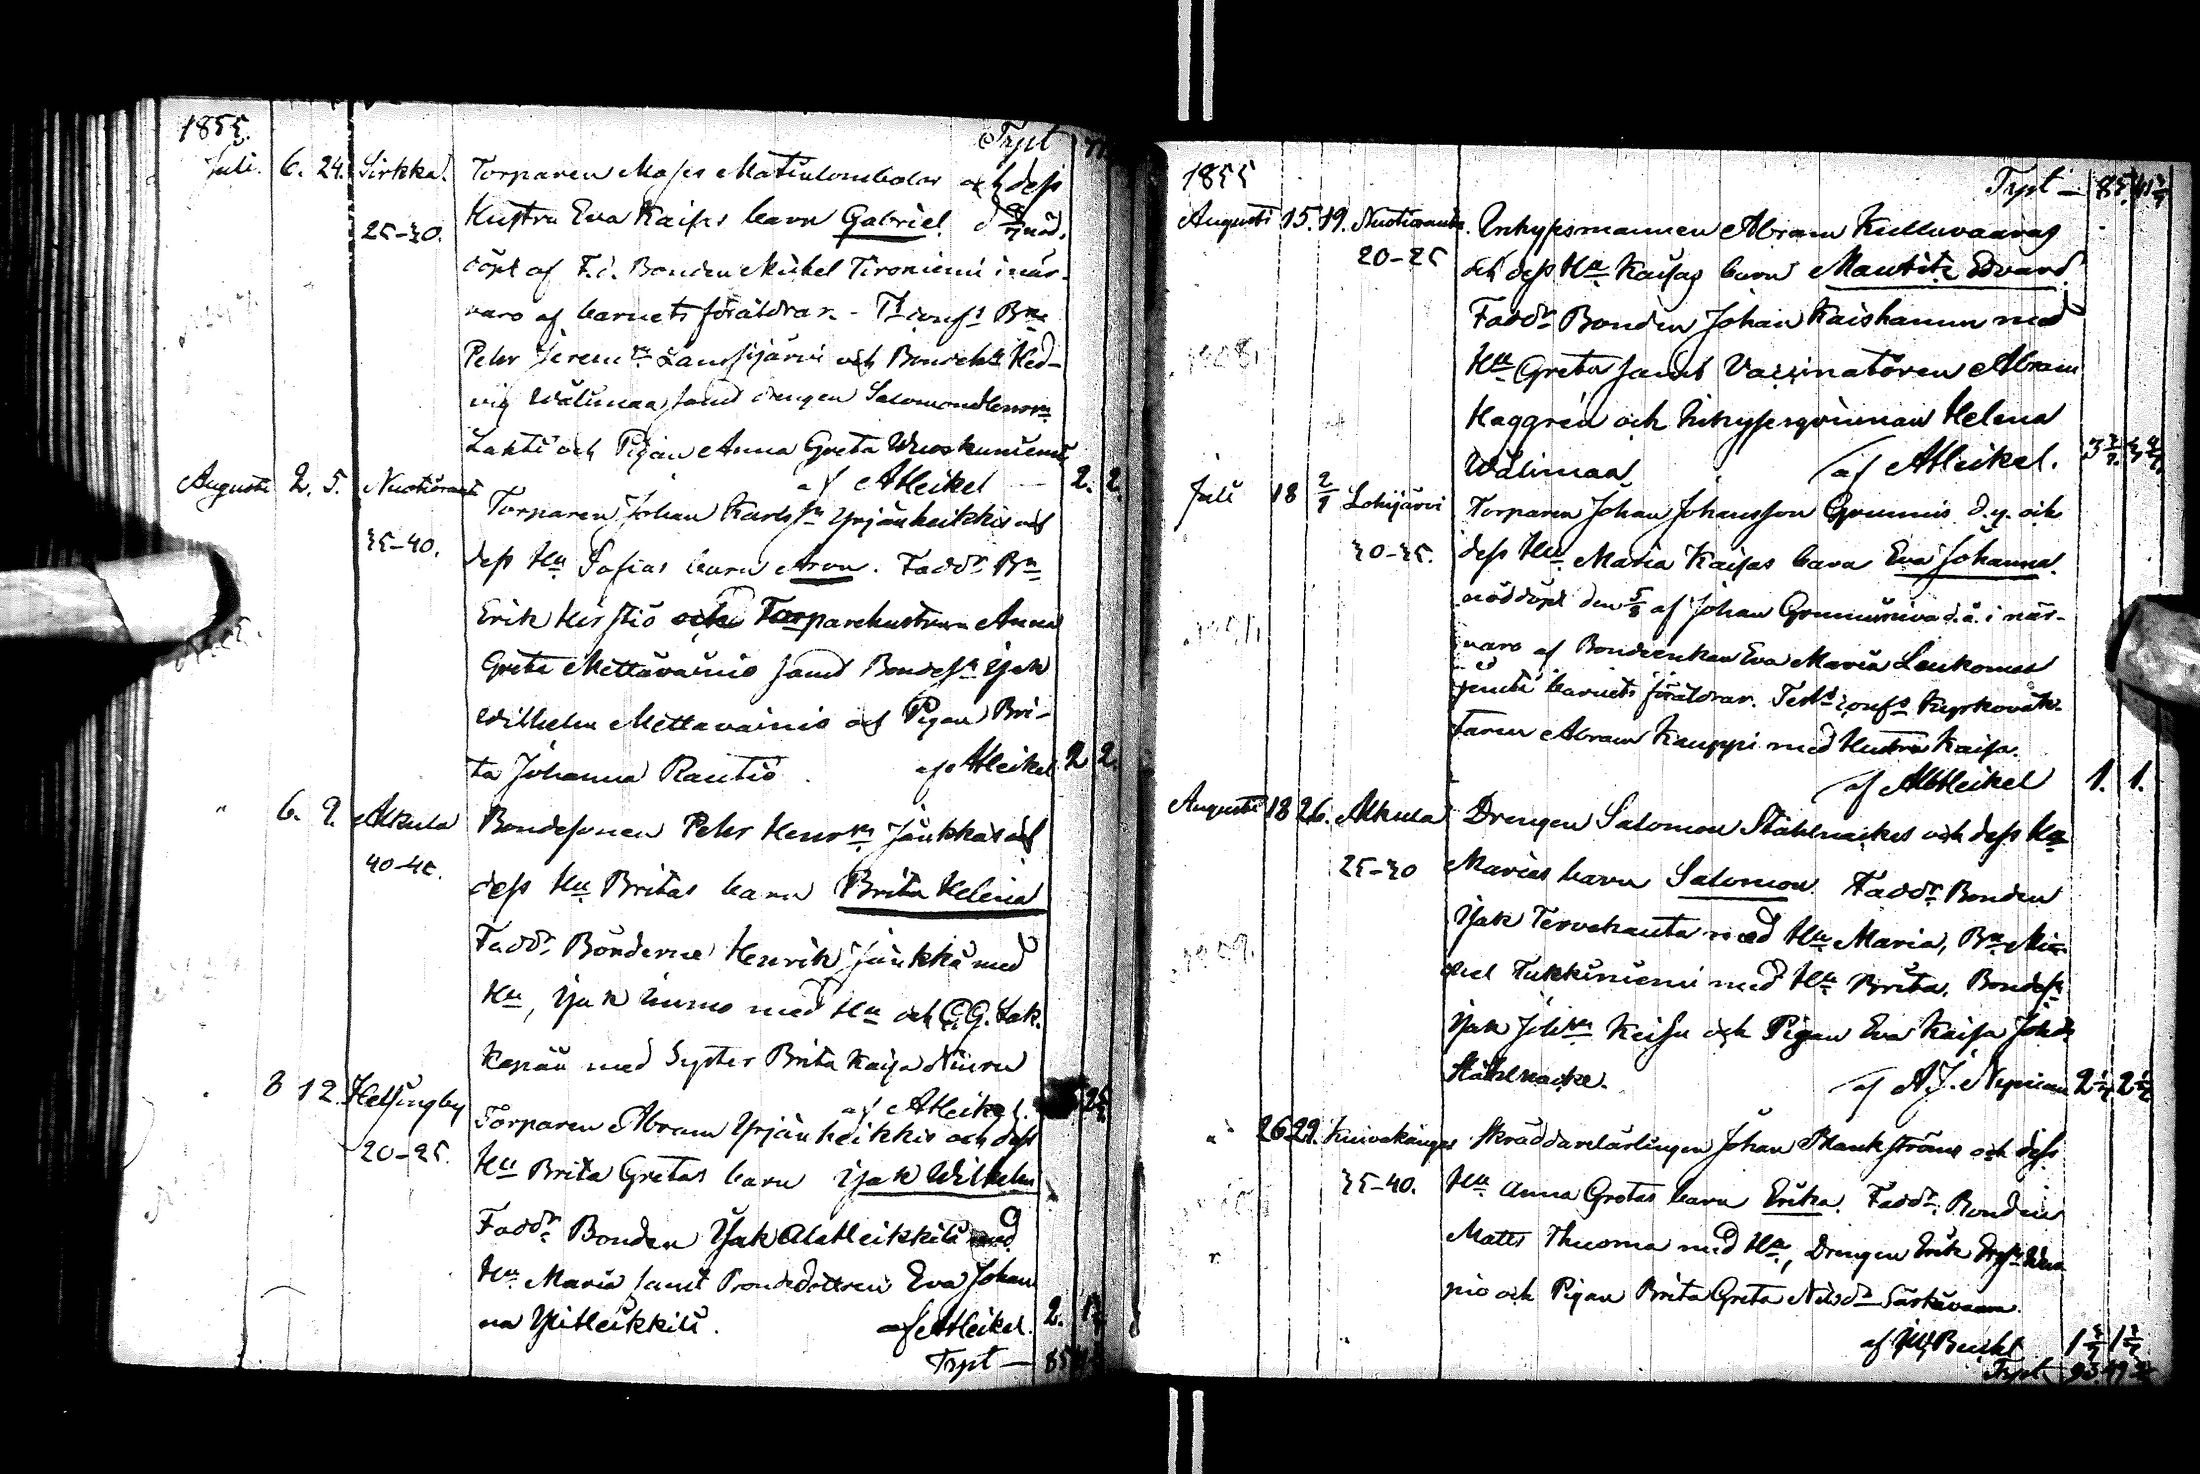 1855.
Trpt
Juli. 6. 24. Sirkka. Torparen Moses Matinlombolas och dess
25-30. Hustru Eva Kaisas barn Gabriel. d 8/7 nöd-
döpt af F.d. Bonden Mickel Tironiemi i när-
varo af barnets föräldrar. - Bne
Petter Jerem.sn Lanssijärvi och Bondeh. Hed-
vig Wälimaa, samt drengen Salomon Henr.sn
Lahti och Pigan Anna Greta Wuoskuniemi
af A Heikel 2. 2.
Augusti 2. 5. Nuotioranta Torparen Johan Karlss.n Yrjänheikkis och
35-40. dess Hu Sofias barn Aron. Faddr. Bn
Erik Kirstiö och Torparehustrun Anna
Greta Mettävainio samt Bondes.n Isak
Wilhelm Mettävainio och Pigan Bri-
ta Johanna Rautio. af A Heikel 2 2.
" 6. 9. Alkula Bondesonen Petter Henr.sn Jänkkäs och
40-45. dess Hu Britas barn Brita Helena
Faddr. Bönderne Henrik Jänkkä med
Hu, Isak Immo med Hu och C.G. Lak-
kapää med Syster Brita Kaisa Niiru
af A Heikel.
" 8 12. Helsingby Torparen Abram Yrjänheikkis och dess
20-25. Hu Brita Gretas barn Isak Wilhelm
Faddr. Bonden Isak Alaheikkilä med
Hu Maria samt Bondedottren Eva Johan
na Yliheikkilä. af A Heikel. 2.
Trpt — 85
1855
Trpt — 85
Augusti 15. 19. Nuotioranta. Inhysesmannen Abram Kulluvaaras
20-25 och dess Hu Kaisas barn Mauritz Edvard
Faddr. Bonden Johan Kaishannu med
Hu Greta samt Vaccinatören Abram
Haggrén och Inhysesqvinnan Helena
Wälimaa. af A Heikel.
Juli 18 2/9 Lohijärvi Torparen Johan Johansson Grunnis d.y. och
30-35. dess Hu Maria Kaisas barn Eva Johanna.
nöddöpt den 5/8 af Johan d.ä. i när-
varo af Bondeenkan Eva Maria Leukomaa
jemte barnets föräldrar. Kyrkoväk-
taren Abram Kauppi med Hustru Kaisa.
af A Heikel 1. 1.
Augusti 18 26. Alkula Drengen Salomon Ståhlnackes och dess Hu
25-30 Marias barn Salomon. Faddr. Bonden
Isak Tervahauta med Hu Maria, Bn Mic-
kel Tukkiniemi med Hu Brita. Bondes.n
Isak Joh.sn Keisu och Pigan Eva Kaisa Johd.
Ståhlnacke. af A.J. Nyman
" 26 29. Kuivakangas Skräddarelärlingen Johan Blankströms och dess
35-40. Hu Anna Gretas barn Erika. Faddr. Bonden
Matts Thuoma med Hu, Drengen Erik
pio och Pigan Brita Greta Nilsdr. Särkivaara.
af
Trpt